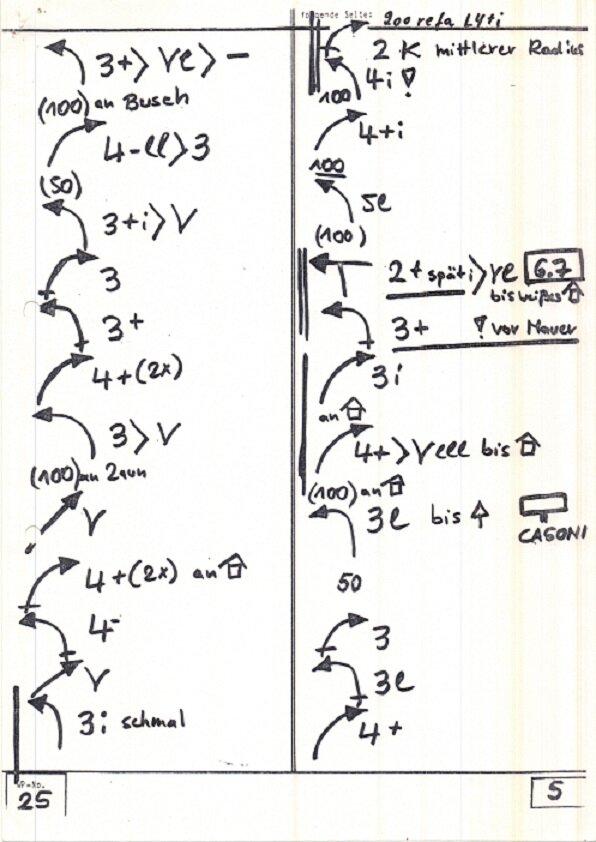 folgende Seite: 200 refa L4+i
3+> Ve > –
(100) an Busch
4-ll>3
(50)
3+i>V
3
3+
4+(2x)
3>V
(100) an Zaun
V
4+(2x) an
4-
V
3i schmal
WP-No.
25
2 K mittlerer Radius
4i !
100
4+i
100
5l
(100)
2+ spät i > Ve 6.7
bis weißes
3+ ! vor Mauer
3i
an
4+>Vlll bis
(100) an
3l bis
CASONI
50
3
3l
4+
5